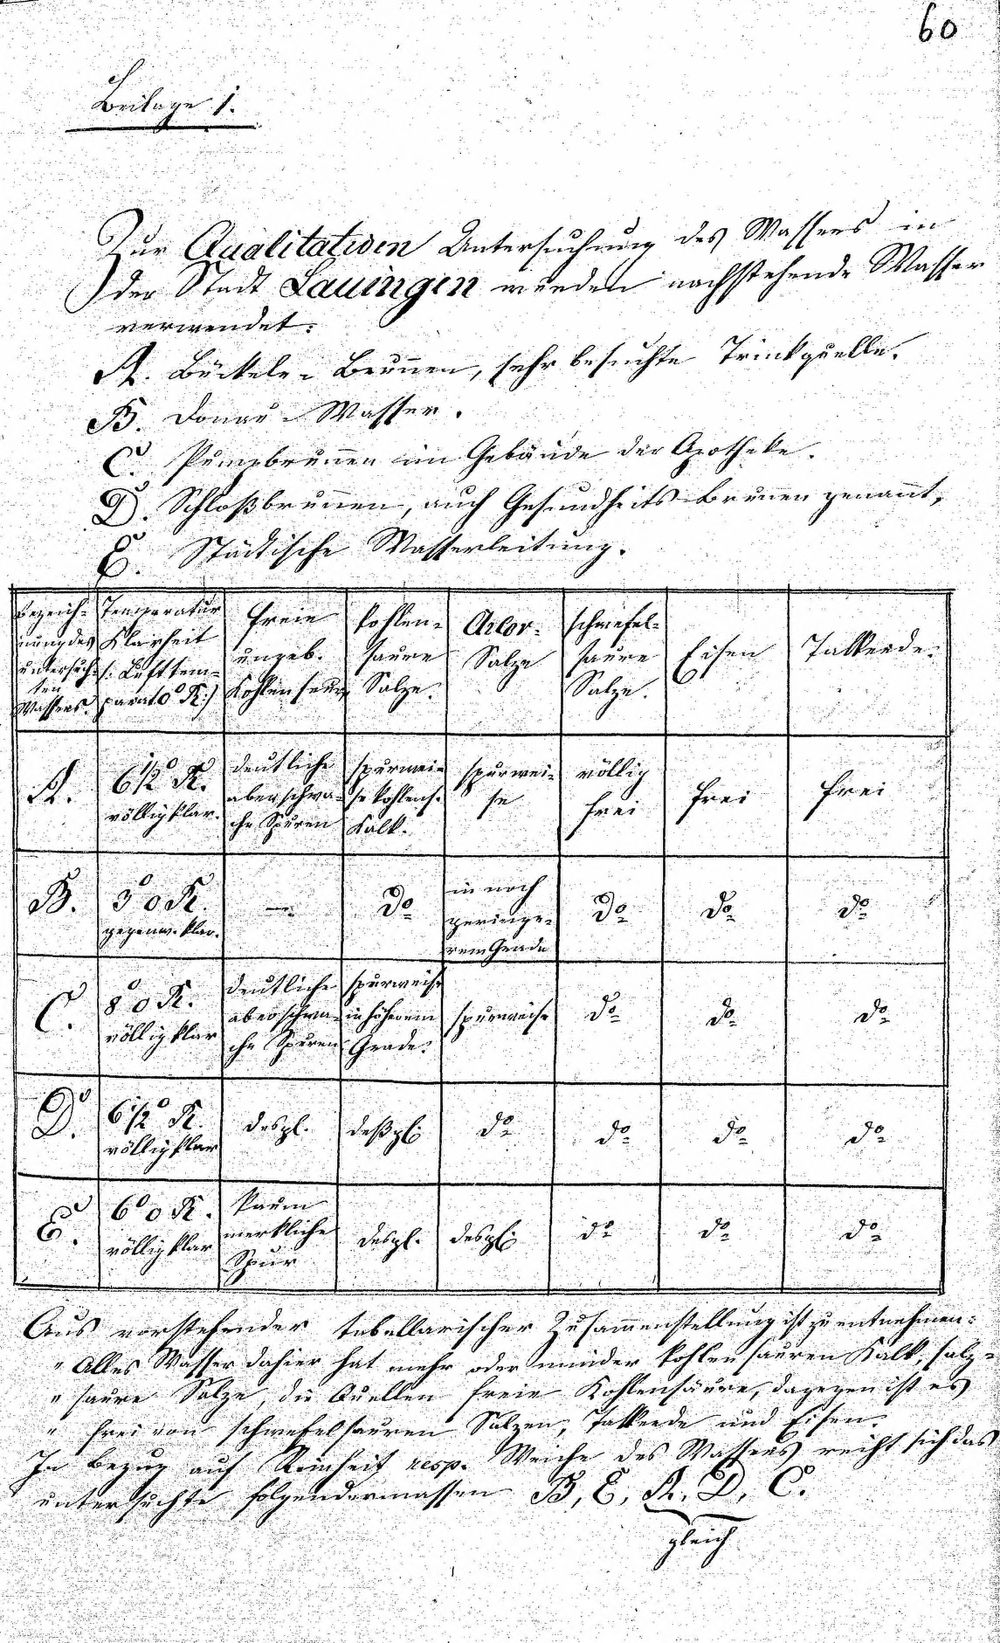 60
Beilage 1.
Zur Qualitativen Untersuchung des Wassers in
der Stadt Lauingen wurden nachstehende Wasser
verwendet:
A. Bückele-Brunnen, sehr besuchte Trinkquelle.
B. Donau-Wasser.
C. Pumpbrunnen im Gebäude der Apotheke.
D. Schloßbrunnen, auch Gesundheits-Brunnen genannt,
E. Städtische Wasserleitung.
Bezeichnung des untersuchten Wassers. | Temperatur Klarheit (: Lufttemparat 0° R:) | freie ungeb. Kohlensäure | kohlensaure Salze. | Chlor-Salze | schwefelsaure Salze. | Eisen | Talkerde.
A. | 6 1/2° R. völlig klar. | deutliche aber schwache Spuren | spurweise kohlens. Kalk. | spurweise | völlig frei | frei | frei
B. | 3° 0 R. gegenw. klar. | — | do | in noch geringerem Grade | do | do | do
C. | 8° 0 R. völlig klar | deutliche aber schwache Spuren | spurweise in höherem Grade. | spurweise | do | do | do
D. | 6 1/2° R. völlig klar | desgl. | deßgl: | do | do | do | do
E. | 6° 0 R. völlig klar | kaum merkliche Spur | desgl. | desgl: | do | do | do
Aus vorstehender tabellarischer Zusammenstellung ist zu entnehmen:
" Alles Wasser dahier hat mehr oder minder kohlensauren Kalk, salz-
" saure Salze, die Quellen freie Kohlensäure, dagegen ist es
" frei von schwefelsauren Salzen, Talkerde und Eisen.
In Bezug auf Reinheit resp. Weiche des Wassers reiht sich das
untersuchte folgendermassen B, E, A, D, C.
gleich